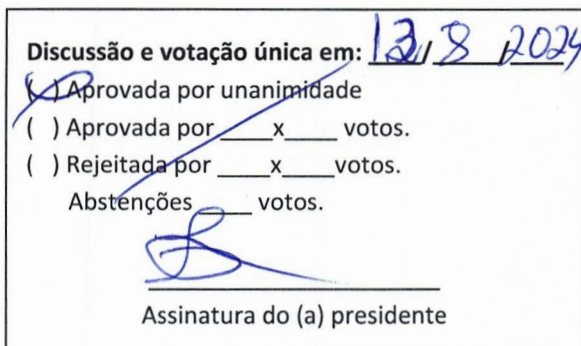 Discussão e votação única em: 13/8/2024
( ) Aprovada por unanimidade
( ) Aprovada por ____x____ votos.
( ) Rejeitada por ____x____votos.
Abstenções ____ votos.
Assinatura do (a) presidente